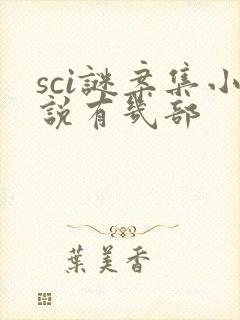 sci謎案集小
說有幾部
葉美香